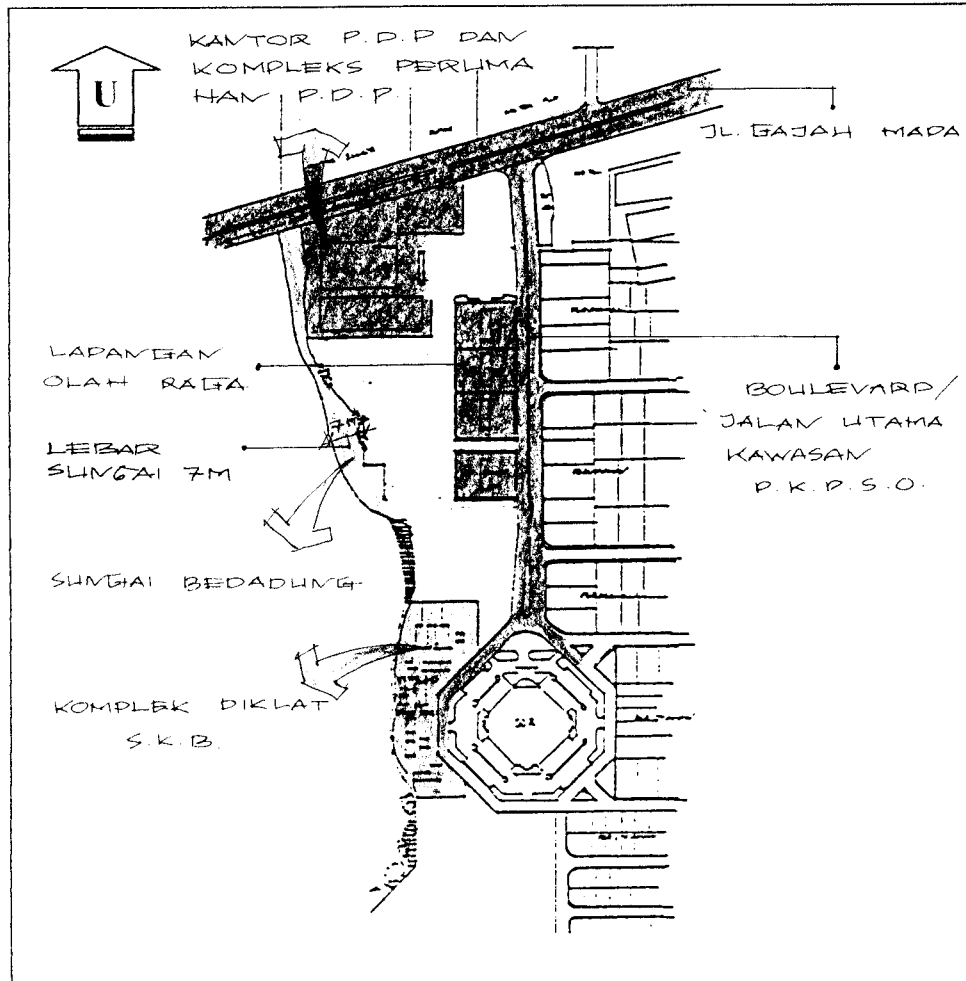 U
KANTOR P.D.P DAN
KOMPLEKS PERUMA
HAN P.D.P.
JL. GAJAH MADA
LAPANGAN
OLAH RAGA
LEBAR
SUNGAI 7M
7 M
BOULEVARD/
JALAN UTAMA
KAWASAN
P.K.P.S.O.
SUNGAI BEDADUNG
KOMPLEK DIKLAT
S.K.B.